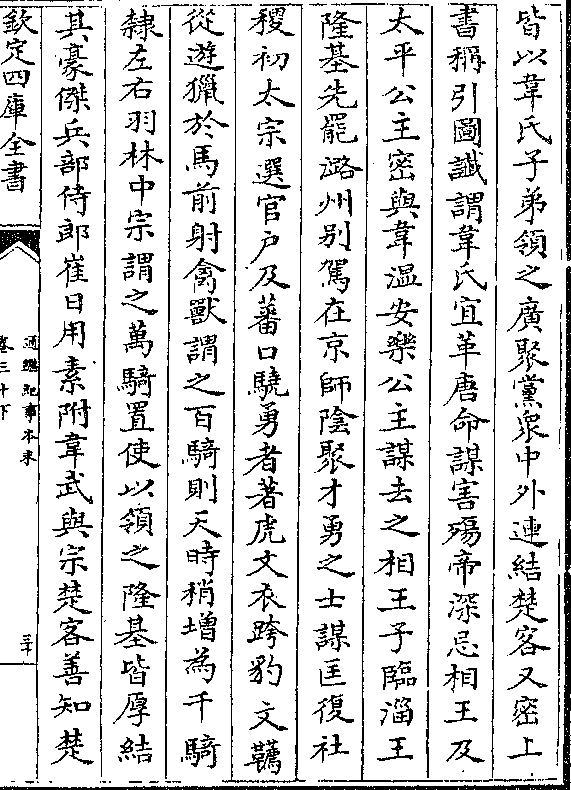 皆以韋氏子弟領之廣聚黨衆中外連結楚客又密上
書稱引圖讖謂韋氏宜革唐命謀害殤帝深忌相王及
太平公主密與韋溫安樂公主謀去之相王子臨淄王
隆基先罷潞州别駕在京師陰聚才勇之士謀匡復社
稷初太宗選官户及蕃口驍勇者著虎文衣跨豹文韀
從遊獵於馬前射禽獸謂之百騎則天時稍增為千騎
隸左右羽林中宗謂之萬騎置使以領之隆基皆厚結
其豪傑兵部侍郎崔日用素附韋武與宗楚客善知楚
欽定四庫全書
通鑑紀事本末
卷三十下
三十